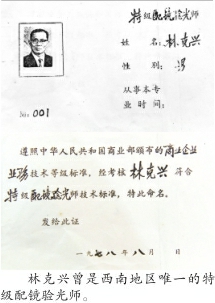 特级配镜验光师
姓 名：林克兴
性 别：男
从事本专
业时间：
No：001
遵照中华人民共和国商业部颁布的商业企业
业务技术等级标准，经考核 林克兴 符合
特级配镜验光师技术标准，特此命名。
发给此证
一九七八年八月 日
林克兴曾是西南地区唯一的特
级配镜验光师。